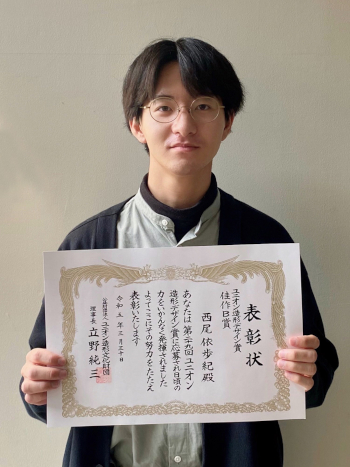 表彰状
ユニオン造形デザイン賞
佳作B賞
西尾 依歩紀殿
あなたは 第二九回 ユニオン
造形デザイン賞に応募され日頃の
力をいかんなく発揮されました
よってここにその努力をたたえ
表彰いたします
令和 五 年 三 月 三十 日
公益財団法人 ユニオン造形文化財団
理事長 立野純三